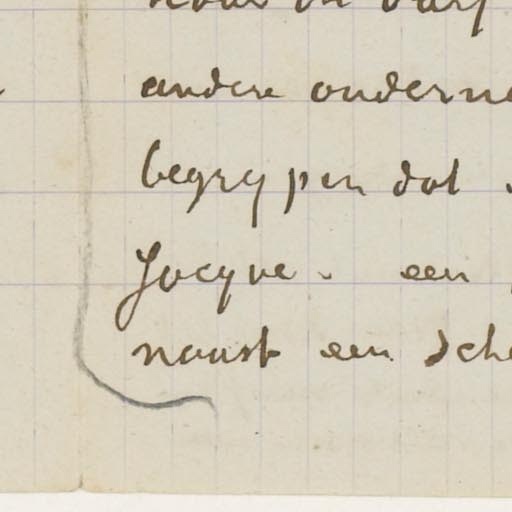 andere onderne
begrypen dat
Jocque. een
naast een sche